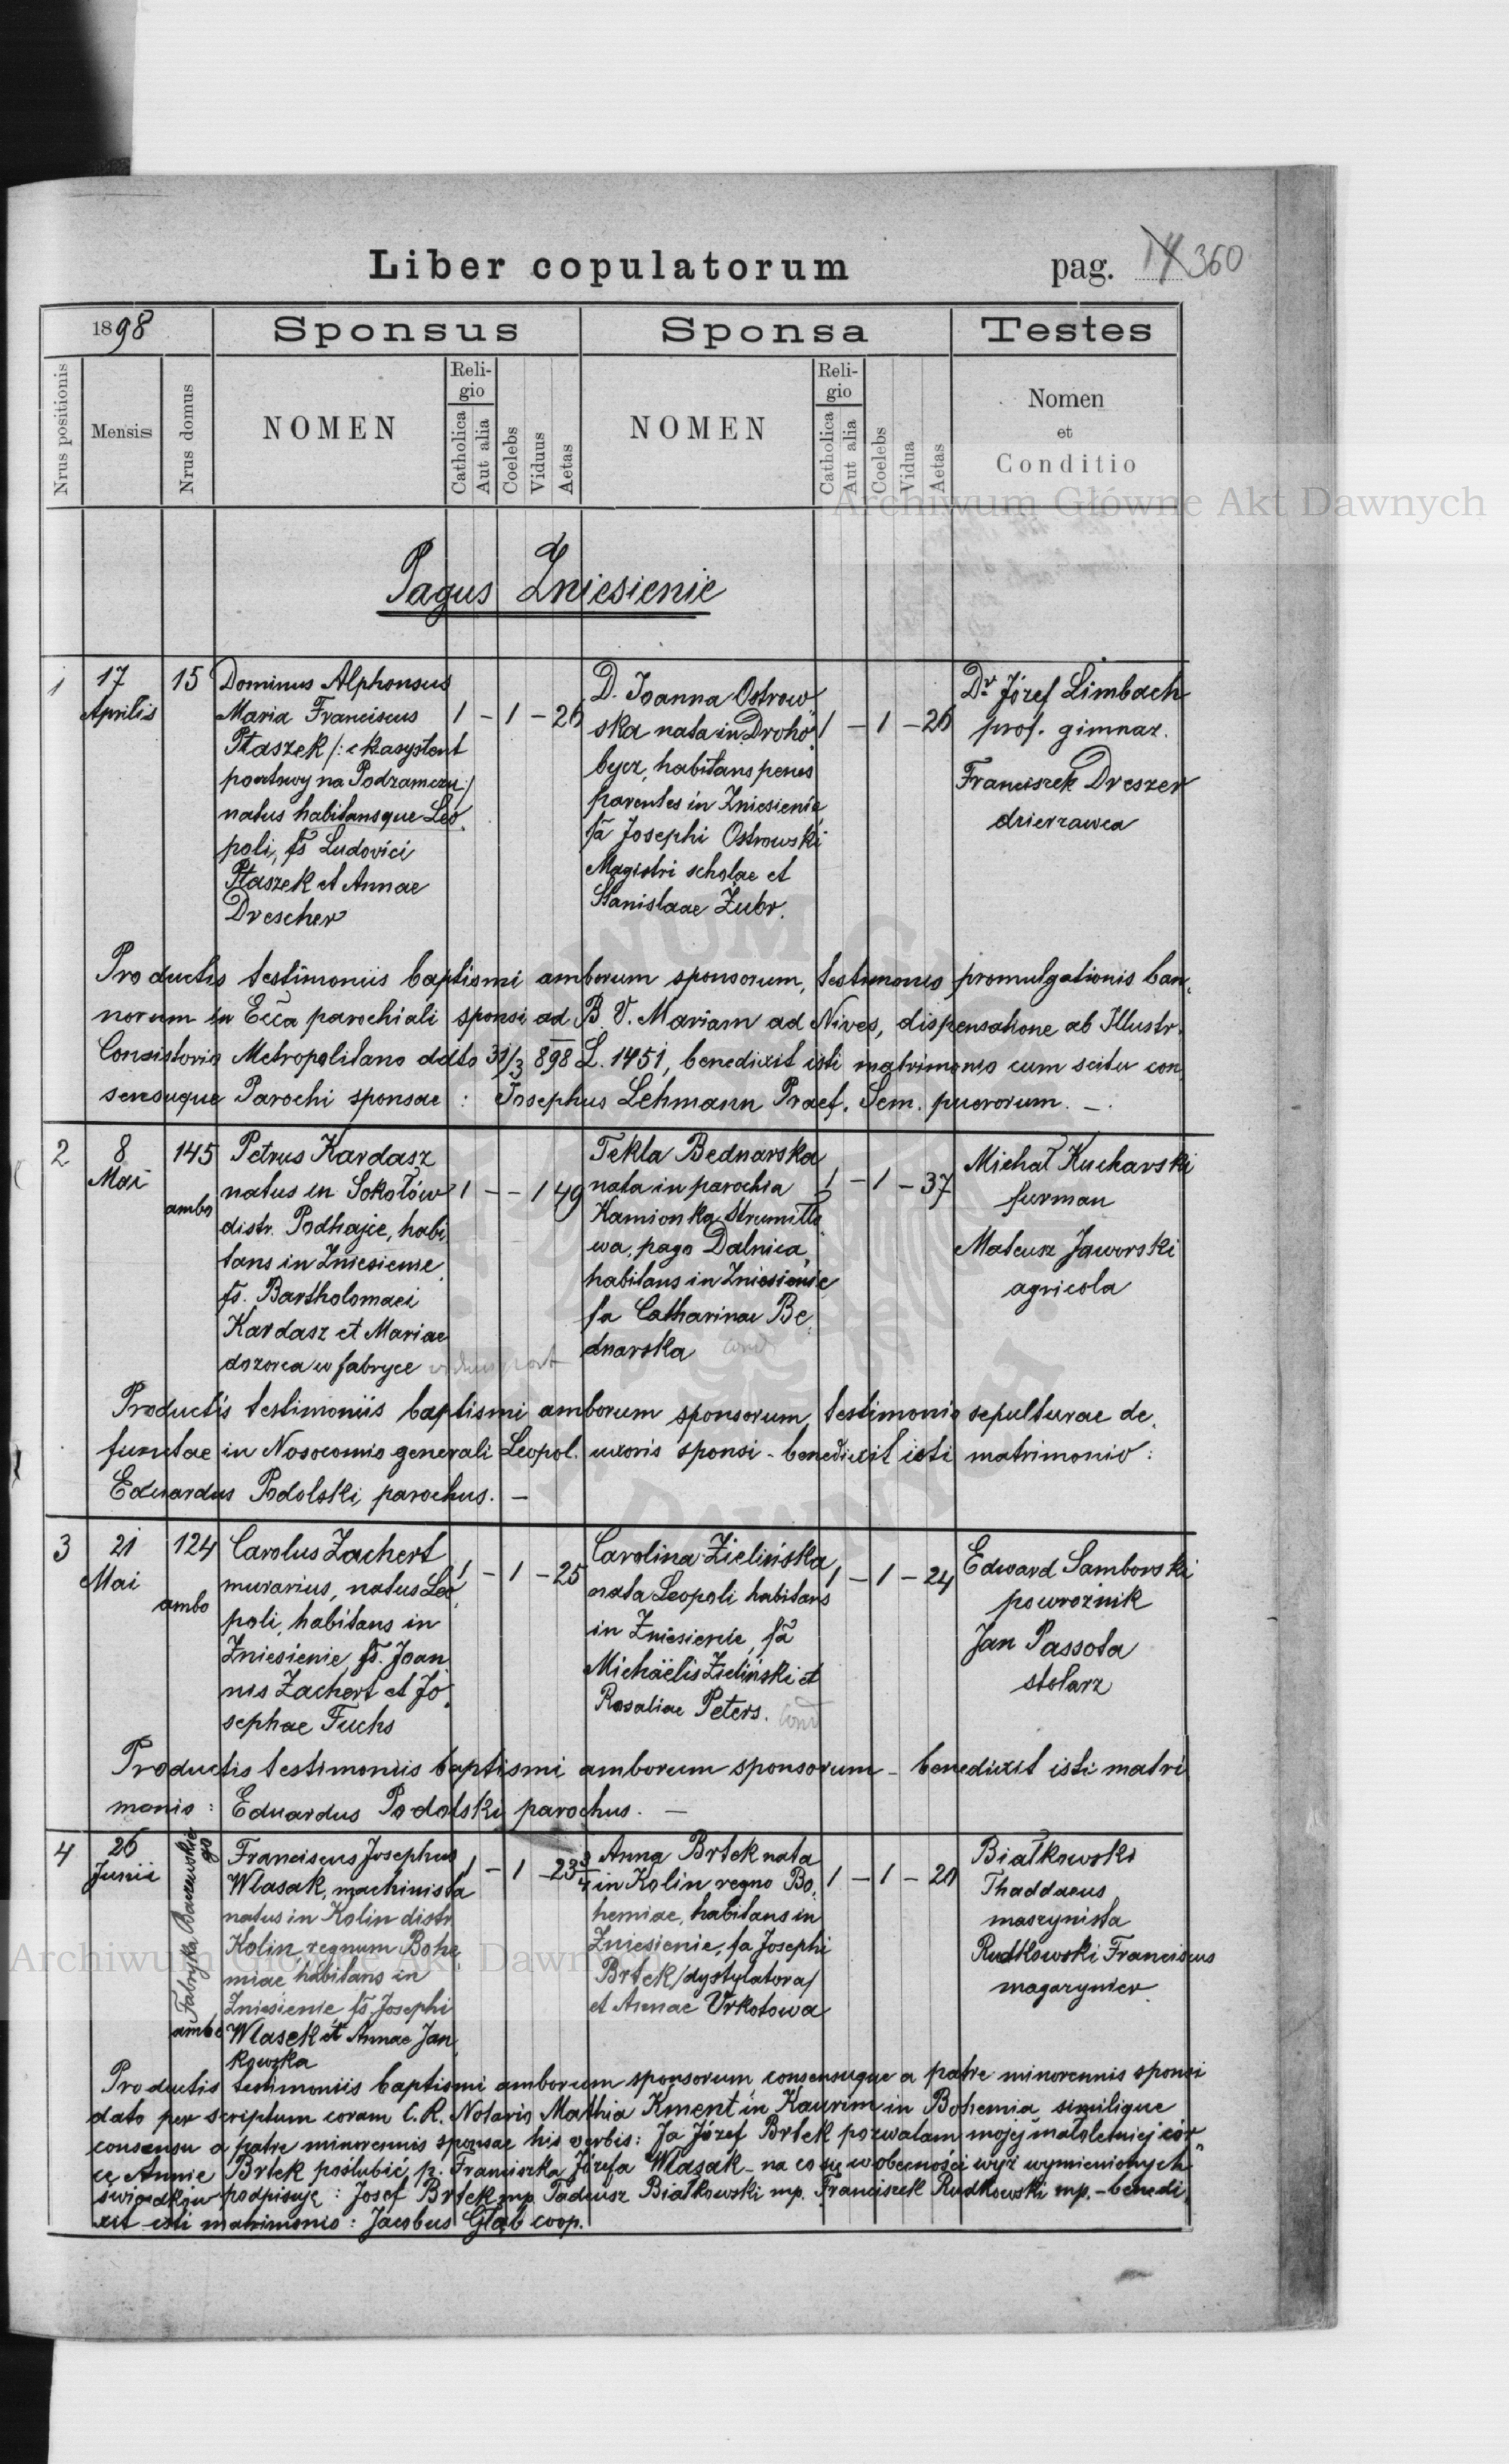 Liber copulatorum
pag. 14 360
1898
Sponsus
Sponsa
Testes
Nrus positionis
Mensis
Nrus domus
NOMEN
Religio
Catholica
Aut alia
Coelebs
Viduus
Aetas
NOMEN
Religio
Catholica
Aut alia
Coelebs
Vidua
Aetas
Nomen
et
Conditio
Archiwum Główne Akt Dawnych
Pagus Zniesienie
1
17
Aprilis
15
Dominus Alphonsus
Maria Franciscus
Ptaszek /: ck asystent
pocztowy na Podzamczu :/
natus habitansque Leo
poli, fs Ludovici
Ptaszek et Annae
Drescher
1 – 1 – 26
D. Joanna Ostrow
ska nata in Droho
bycz, habitans penes
parentes in Zniesienie
fa Josephi Ostrowski
Magistri scholae et
Stanislaae Żubr.
1 – 1 – 26
Dr Józef Limbach
prof. gimnaz.
Franciszek Dreszer
dzierzawca
Productis testimoniis baptismi amborum sponsorum, testimonio promulgationis ban
norum in Ecca parochiali sponsi ad B. V. Mariam ad Nives, dispensatione ab Illustr.
Consistorio Metropolitano ddto 31/3 898 L. 1451, benedixit isti matrimonio cum scitu con
sensuque Parochi sponsae : Josephus Lehmann Praef. Sem. puerorum. –.
2
8
Mai
145
ambo
Petrus Kardasz
natus in Sokołów
distr. Podhajce, habi
tans in Zniesienie
fs. Bartholomaei
Kardasz et Mariae
dozorca w fabryce
1 – – 1 49
Tekla Bednarska
nata in parochia
Kamionka Strumiło
wa, pago Dalnica,
habitans in Zniesienie
fa Catharinae Be
dnarska
1 – 1 – 37
Michał Kucharski
furman
Mateusz Jaworski
agricola
Productis testimoniis baptismi amborum sponsorum, testimonio sepulturae de
functae in Nosocomio generali Leopol. uxoris sponsi – benedixit isti matrimonio :
Eduardus Podolski, parochus. –
3
21
Mai
124
ambo
Carolus Zachert
murarius, natus Leo
poli, habitans in
Zniesienie fs. Joan
nis Zachert et Jo
sephae Fuchs
1 – 1 – 25
Carolina Zielińska
nata Leopoli habitans
in Zniesienie, fa
Michaëlis Zieliński et
Rosaliae Peters.
1 – 1 – 24
Edward Samborski
powroźnik
Jan Passota
stolarz
Productis testimoniis baptismi amborum sponsorum – benedixit isti matri
monio : Eduardus Podolski parochus. –
4
26
Junii
Fabryka Baczewskie
go
ambo
Franciscus Josephus
Wlasak, machinista
natus in Kolin distr.
Kolin regnum Bohe
miae habitans in
Zniesienie fs. Josephi
Wlasek et Annae Jan
kowska
1 – 1 – 23 3/4
Anna Brtek nata
in Kolin regno Bo
hemiae, habitans in
Zniesienie, fa Josephi
Brtek /dystylatora/
et Annae Vrkotowa
1 – 1 – 20
Białkowski
Thaddaeus
maszynista
Rudkowski Franciscus
magazynier
Archiwum Główne Akt Dawnych
Productis testimoniis baptismi amborum sponsorum, consensuque a patre minorennis sponsi
dato per scriptum coram C. R. Notario Mathia Kment in Kaurim in Bohemia similique
consensu a patre minorennis sponsae his verbis: Ja Józef Brtek pozwalam mojej małoletniej cór
ce Annie Brtek poślubić p. Franciszka Józefa Wlasak – na co się w obecności wyż wymienionych
świadków podpisuję : Josef Brtek mp. Tadeusz Białkowski mp. Franciszek Rudkowski mp. – benedi
xit isti matrimonio : Jacobus Głąb coop.